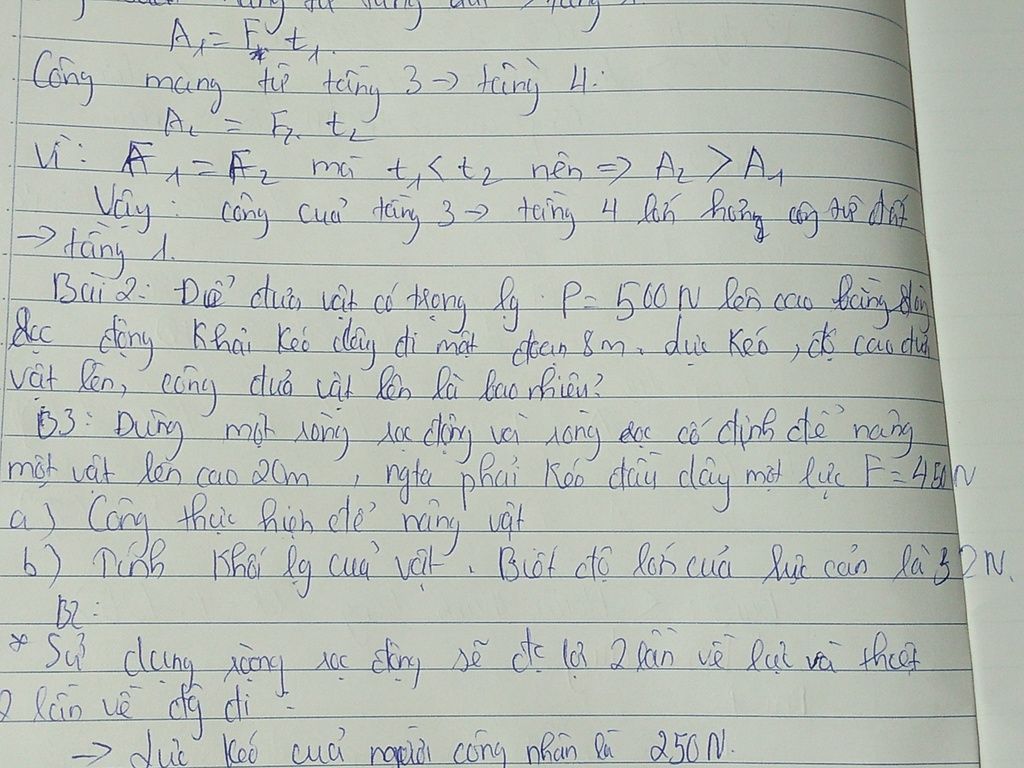 A₁ = F. t₁.
Công mang từ tầng 3 → tầng 4:
A₂ = F₂. t₂
Vì: F₁ = F₂ mà t₁ < t₂ nên => A₂ > A₁
Vậy: công của tầng 3 → tầng 4 lớn hơn công từ đất
→ tầng 1.
Bài 2: Để đưa vật có trọng lg P = 500N lên cao bằng ròng
rọc động phải kéo dây đi một đoạn 8m. Lực kéo, độ cao đưa
vật lên, công đưa vật lên là bao nhiêu?
B3: Dùng một ròng rọc động và ròng rọc cố định để nâng
một vật lên cao 20m, ngta phải kéo đầu dây một lực F = 450N
a) Công thực hiện để nâng vật
b) Tính khối lg của vật. Biết độ lớn của lực cản là 32N.
B2:
* Sử dụng ròng rọc động sẽ đc lợi 2 lần về lực và thiệt
2 lần về đg đi.
→ Lực kéo của người công nhân là 250N.